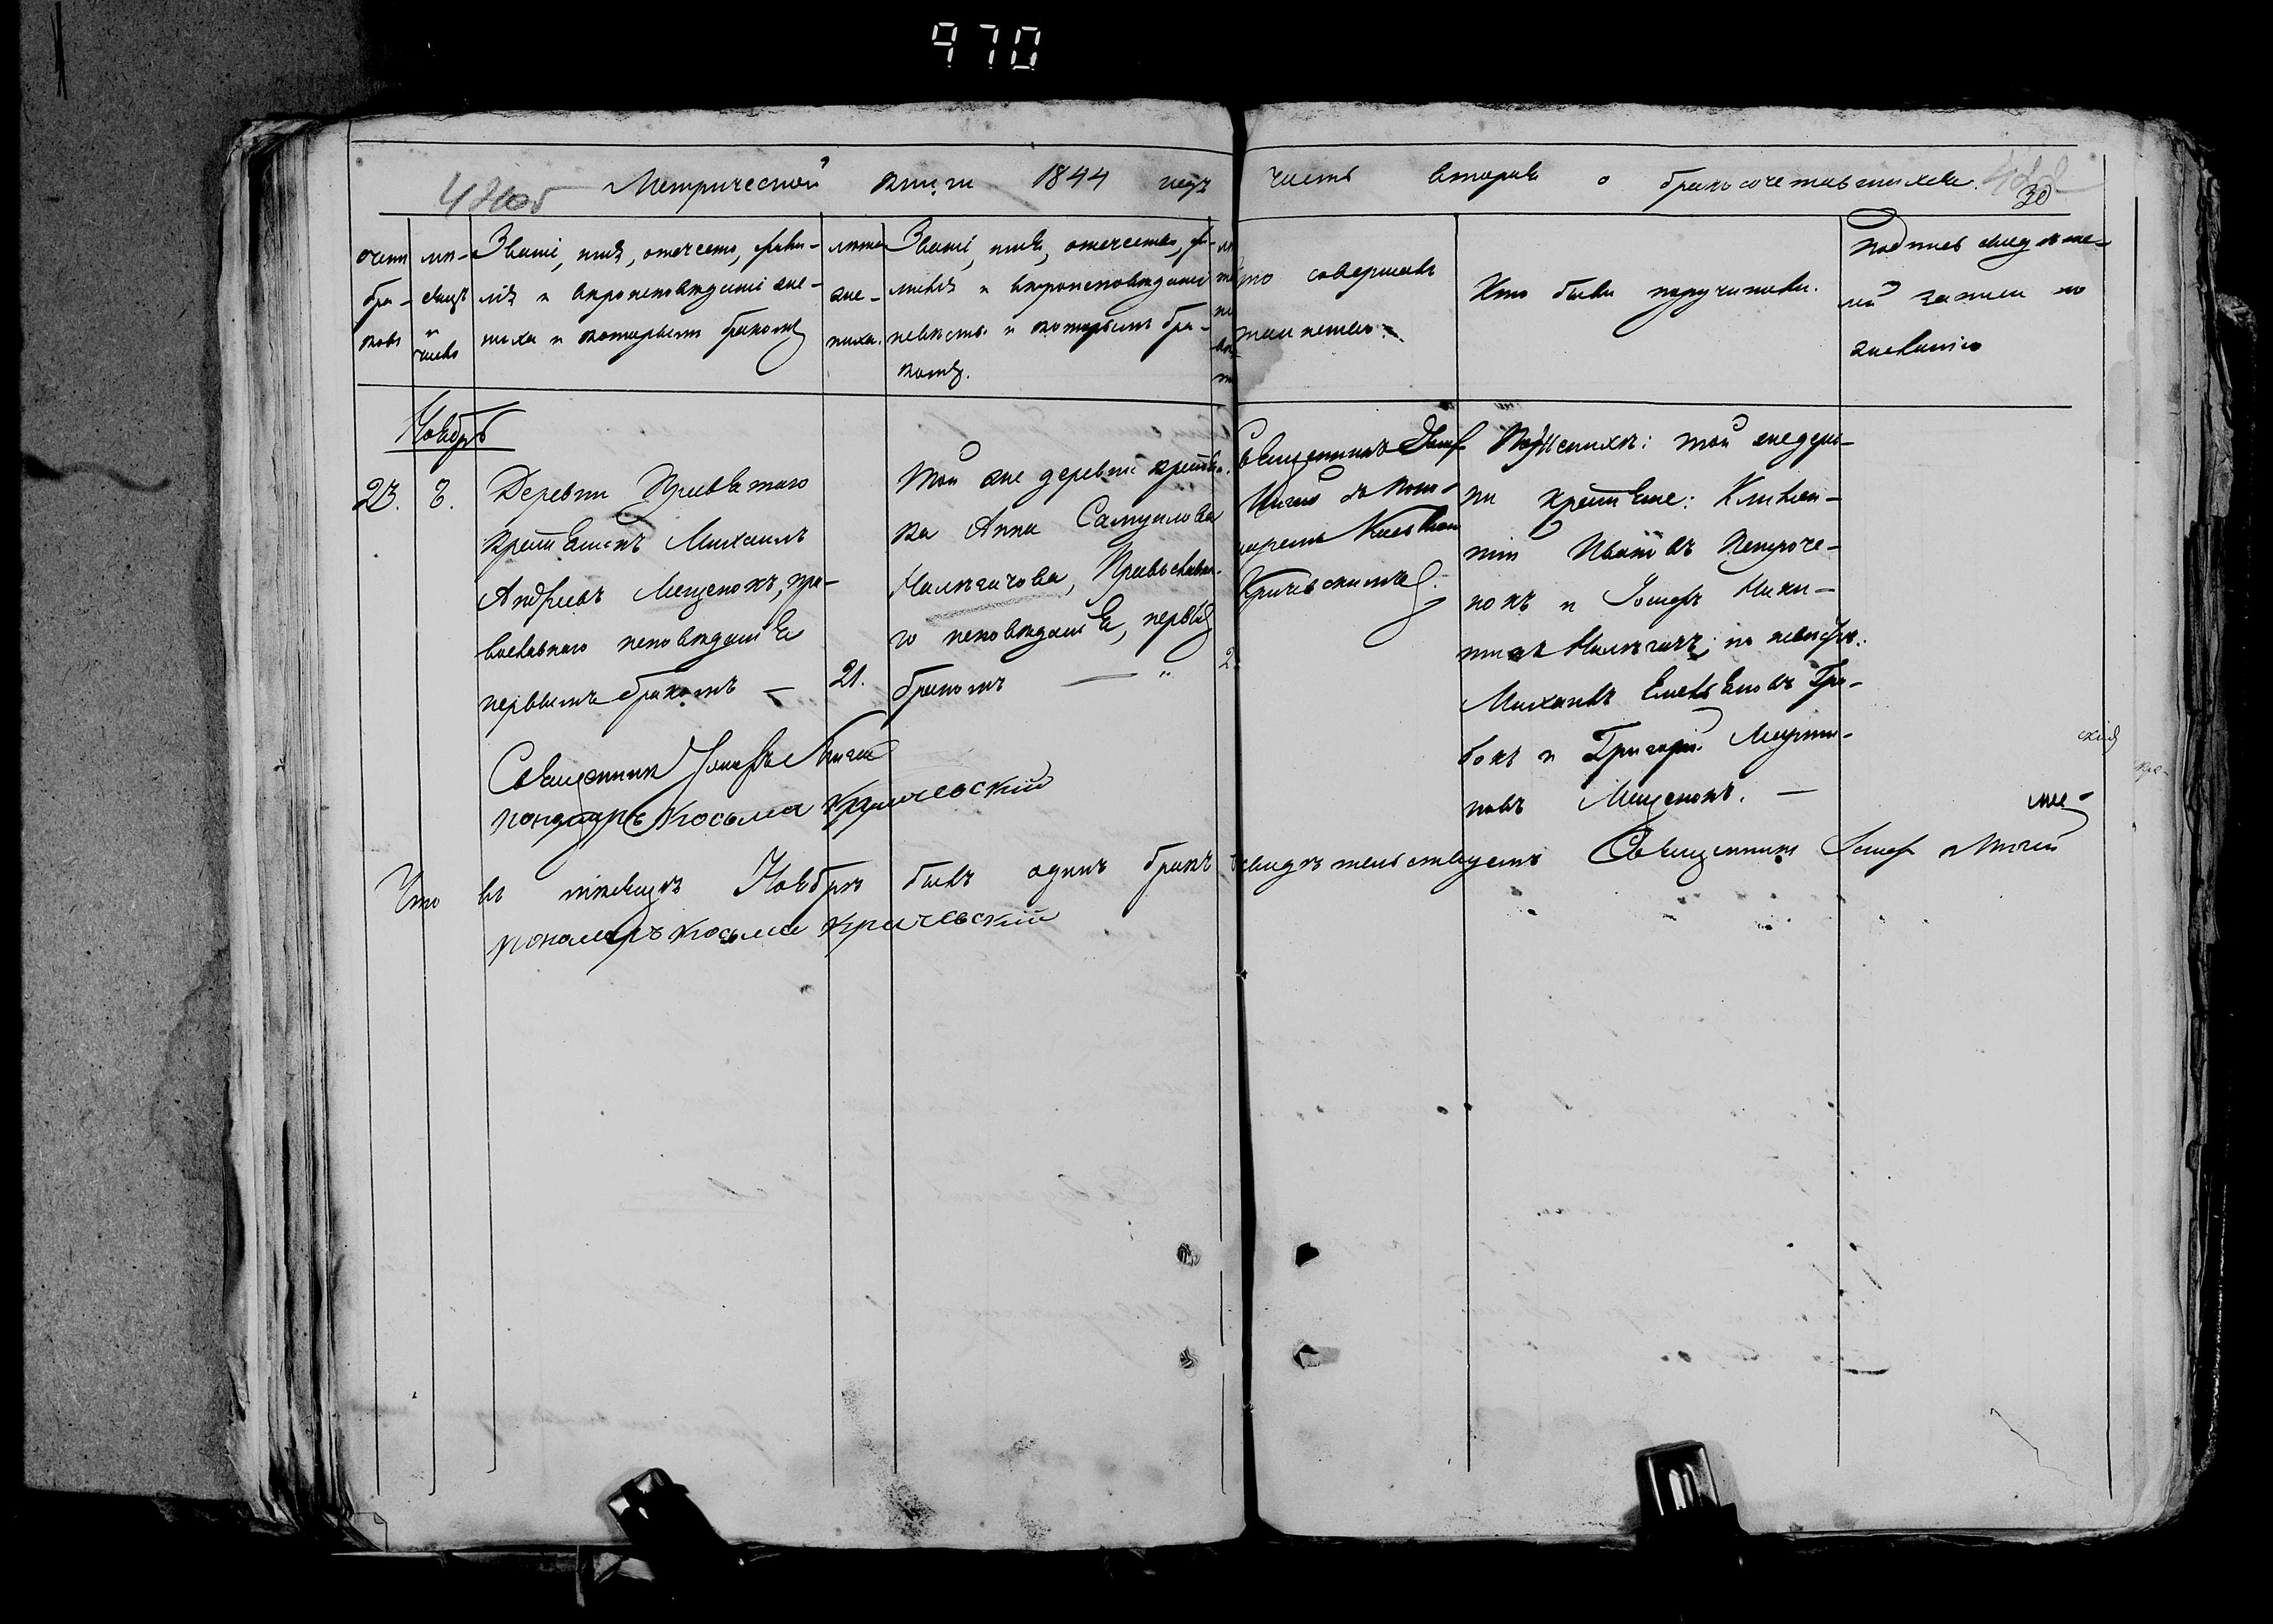 970
Метрической книги 1844 года часть вторая о бракосочетавшихся.
30
счетъ браковъ
мѣсяцъ и число
Званіе, имя, отчество, фами-
лія и вѣроисповѣданіе же-
ниха и которымъ бракомъ
лѣта
же-
ниха.
Званіе, имя, отчество, фа-
милія и вѣроисповѣданіе
невѣсты и которымъ бра-
комъ.
то совершалъ
таинство.
Кто были поручители.
Подпись свидѣте-
лей записи по
желанію
Ноябрь
23. 8.
Деревни
крестьянинъ Михаилъ
Андреевъ Мещенокъ, пра-
вославнаго исповѣданія
первымъ бракомъ — 21.
Той же деревни крестьян.
ка Анна Самуилова
православна-
го исповѣданія, первымъ
бракомъ — " 2
Священникъ Іосифъ
съ поно-
маремъ Косьмою
Кричевскимъ.
По женихѣ: той же дерев-
ни крестьяне:
Ивановъ Петроче-
нокъ и Іосифъ Ники-
тинъ по невѣстѣ:
Михаилъ Емельяновъ Гра-
бокъ и Григорій Марти-
новъ Мещенокъ. —
Священникъ Іосифъ
пономарь Косьма Кричевскій
Что въ мѣсяцѣ Ноябрѣ былъ одинъ бракъ свидѣтельствуемъ Священникъ Іосифъ
пономарь Косьма Кричевскій